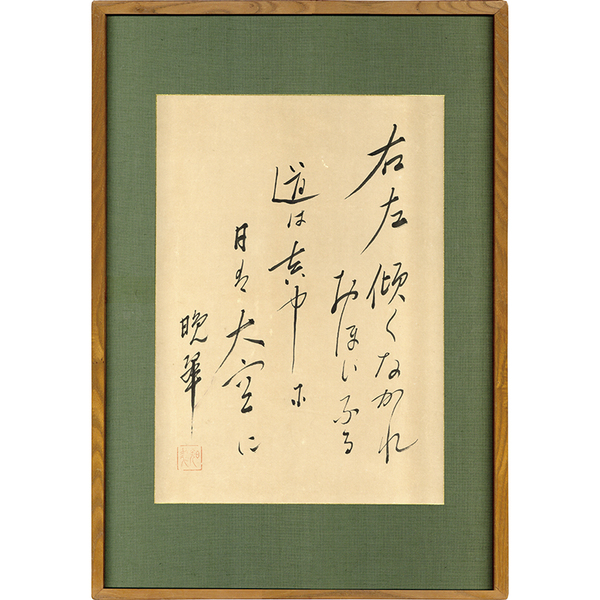 右左傾くなかれ
おほいなる
道は真中に
日は大空に
晩翠